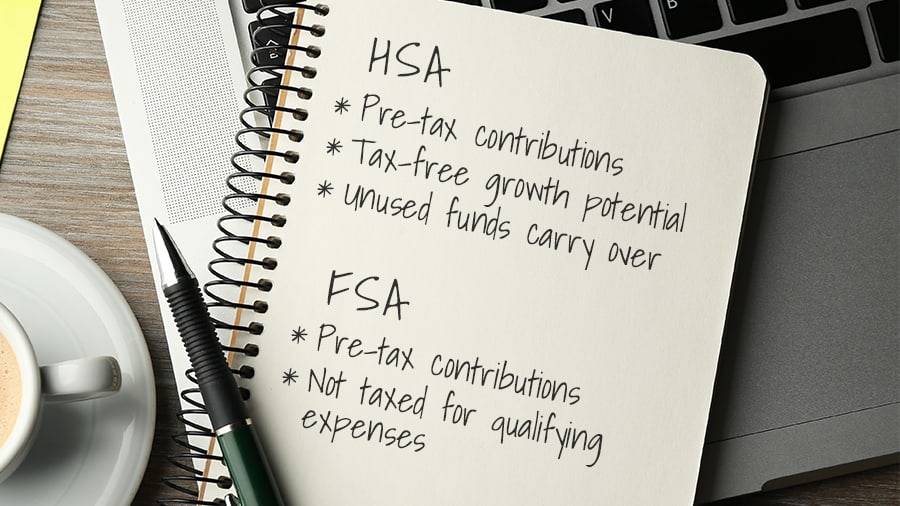 HSA
* Pre-tax contributions
* Tax-free growth potential
* unused funds carry over
FSA
* Pre-tax contributions
* Not taxed for qualifying
expenses
V
B